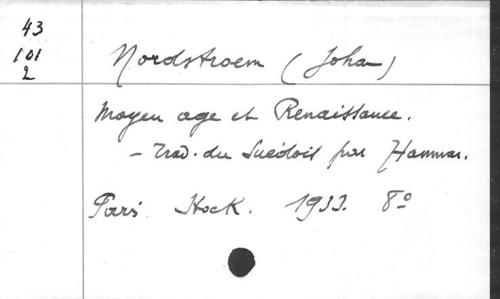 43
101
2
Nordstroem (Johan)
Moyen age et Renaissance.
- Trad. du Suédois par Hammar.
Paris Stock. 1933. 8°